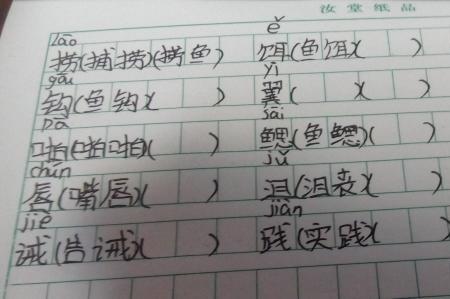 汝 堂 纸 品
lāo ě
捞(捕捞)(捞鱼) 饵(鱼饵)( )
gōu yì
钩(鱼钩)( ) 翼( )( )
pā sāi
啪(啪啪)( ) 鳃(鱼鳃)( )
chún jǔ
唇(嘴唇)( ) 沮(沮丧)( )
jiè jiàn
诫(告诫)( ) 践(实践)( )